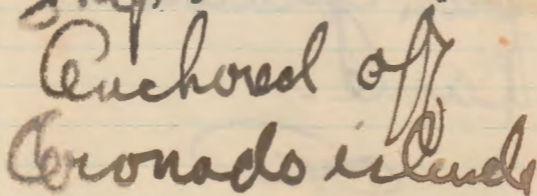 Anchored off
Coronado islands